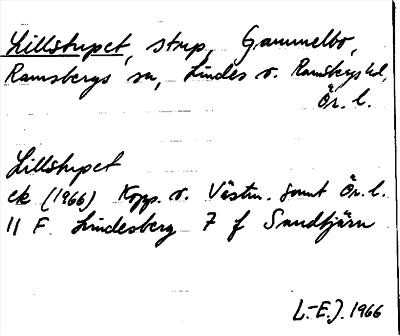 Lillstupet, strup, Gammelbo,
Ramsbergs sn, Lindes o. Ramsbergs hd,
Ör. l.
Lillstupet
ek (1966) Kopp. o. Västm. samt Ör. l.
11 F Lindesberg 7 f Sandtjärn
L.-E.J. 1966